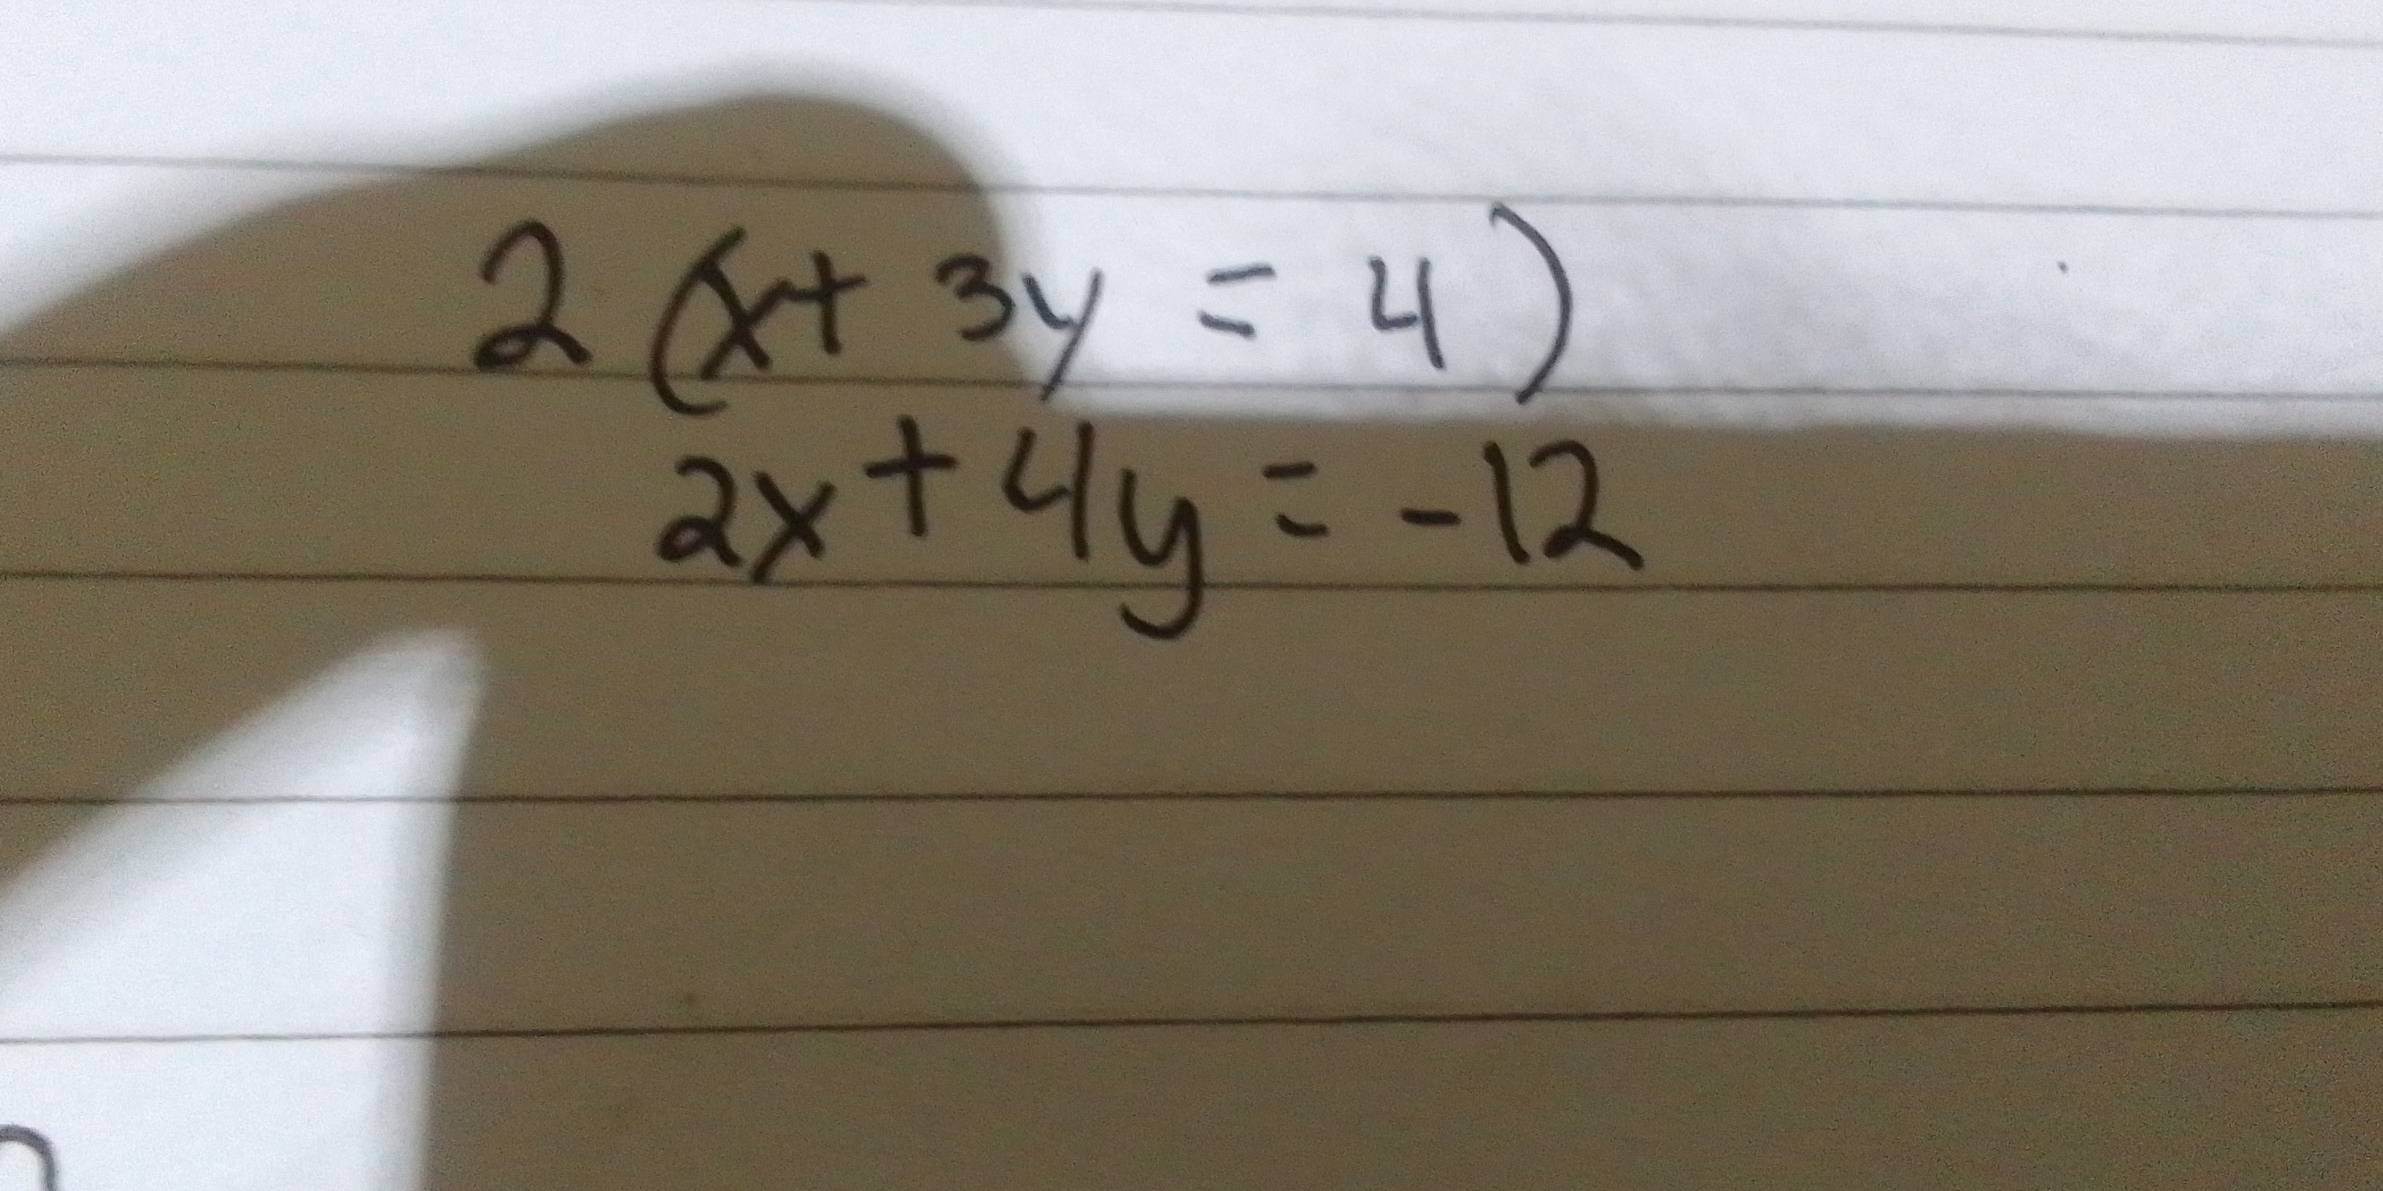 2 (x + 3y = 4)
2x + 4y = -12